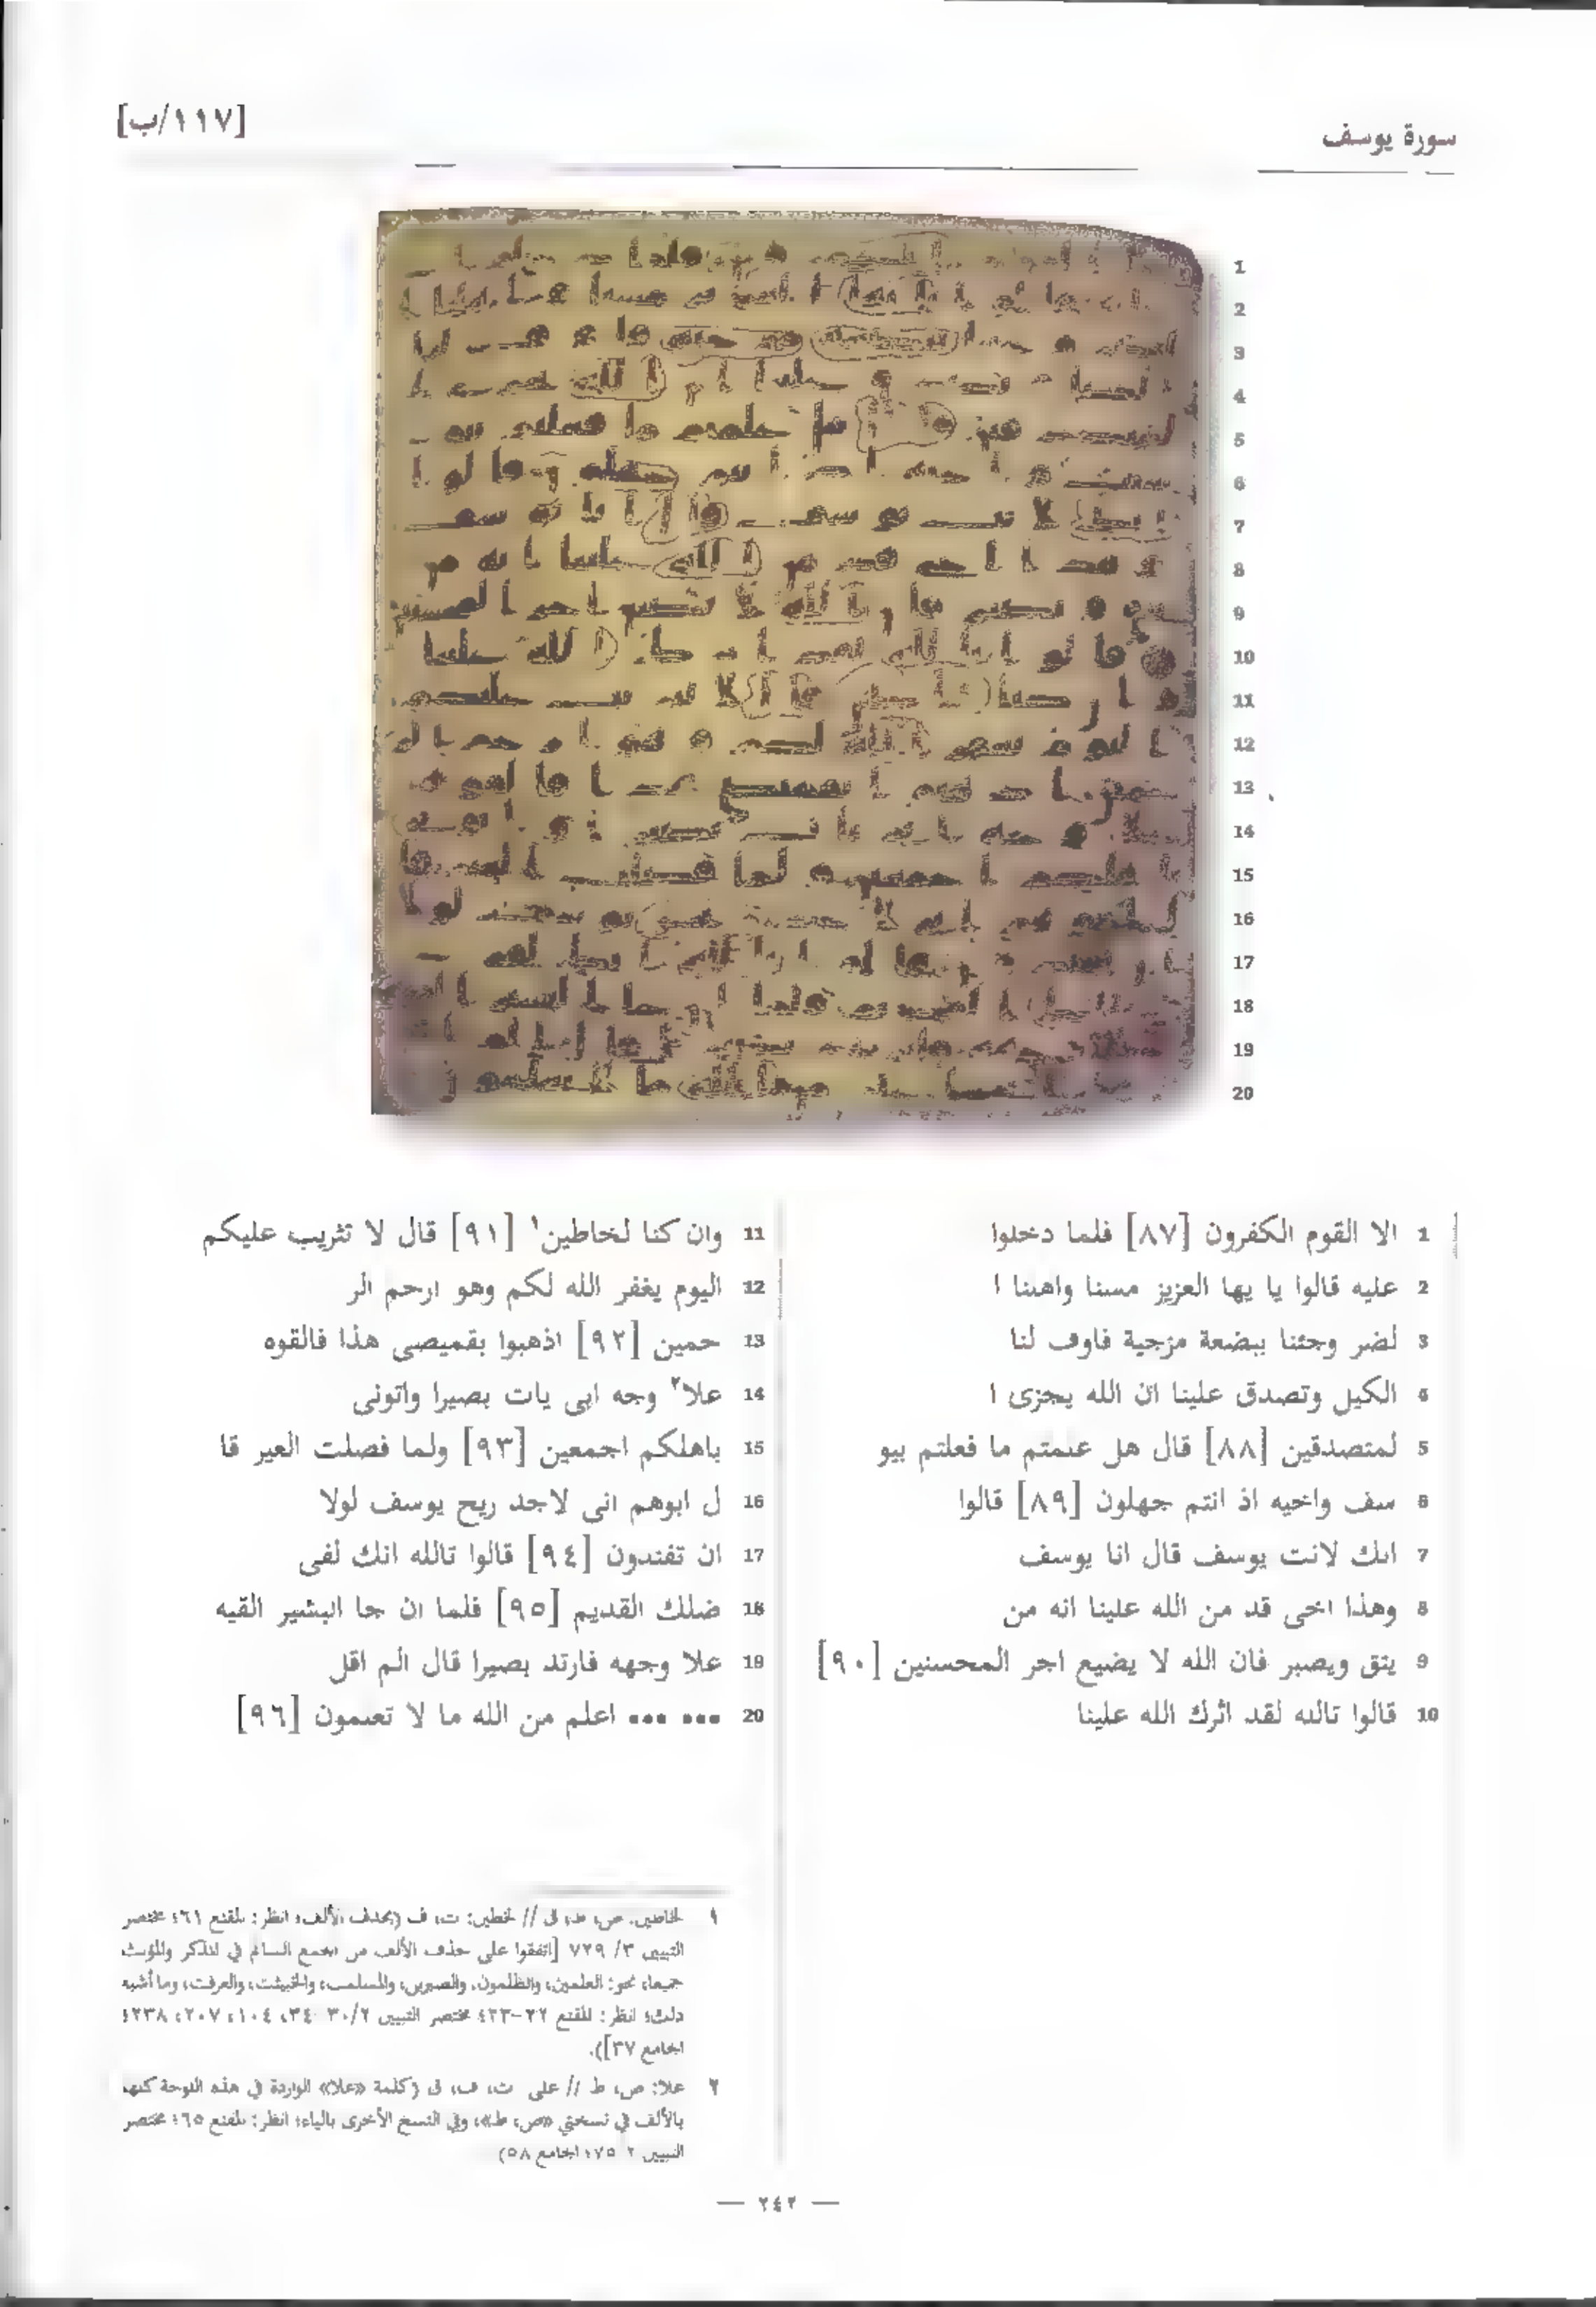 سورة يوسف
[١١٧/ب]
1 الا القوم الكفرون [٨٧] فلما دخلوا
2 عليه قالوا يا يها العزيز مسنا واهلنا ا
3 لضر وجئنا ببضعة مزجية فاوف لنا
4 الكيل وتصدق علينا ان الله يجزى ا
5 لمتصدقين [٨٨] قال هل علمتم ما فعلتم بيو
6 سف واخيه اذ انتم جهلون [٨٩] قالوا
7 انك لانت يوسف قال انا يوسف
8 وهذا اخى قد من الله علينا انه من
9 يتق ويصبر فان الله لا يضيع اجر المحسنين [٩٠]
10 قالوا تالله لقد اثرك الله علينا
11 وان كنا لخاطين١ [٩١] قال لا تثريب عليكم
12 اليوم يغفر الله لكم وهو ارحم الر
13 حمين [٩٢] اذهبوا بقميصى هذا فالقوه
14 علا٢ وجه ابى يات بصيرا واتونى
15 باهلكم اجمعين [٩٣] ولما فصلت العير قا
16 ل ابوهم انى لاجد ريح يوسف لولا
17 ان تفندون [٩٤] قالوا تالله انك لفى
18 ضللك القديم [٩٥] فلما ان جا البشير القيه
19 علا وجهه فارتد بصيرا قال الم اقل
20 ••• ••• اعلم من الله ما لا تعلمون [٩٦]
١ لخاطين: ص، ط، ق // لخطين: ت، ف (بحذف الألف، انظر: المقنع ٦١؛ مختصر
التبيين ٣/ ٧٢٩ [اتفقوا على حذف الألف من الجمع السالم في المذكر والمؤنث
جميعا، نحو: العلمين، والظلمون، والصبرين، والمسلمت، والخبيثت، والغرفت، وما أشبه
ذلك؛ انظر: المقنع ٢٢-٢٣؛ مختصر التبيين ٣٠/٢-٣٤، ١٠٤، ٢٠٧، ٢٣٨؛
الجامع ٣٧]).
٢ علا: ص، ط // على: ت، ف، ق (كلمة «علا» الواردة في هذه اللوحة كلها
بالألف في نسختي «ص، ط»، وفي النسخ الأخرى بالياء؛ انظر: المقنع ٦٥؛ مختصر
التبيين ٢/ ٧٥؛ الجامع ٥٨)
— ٢٤٢ —